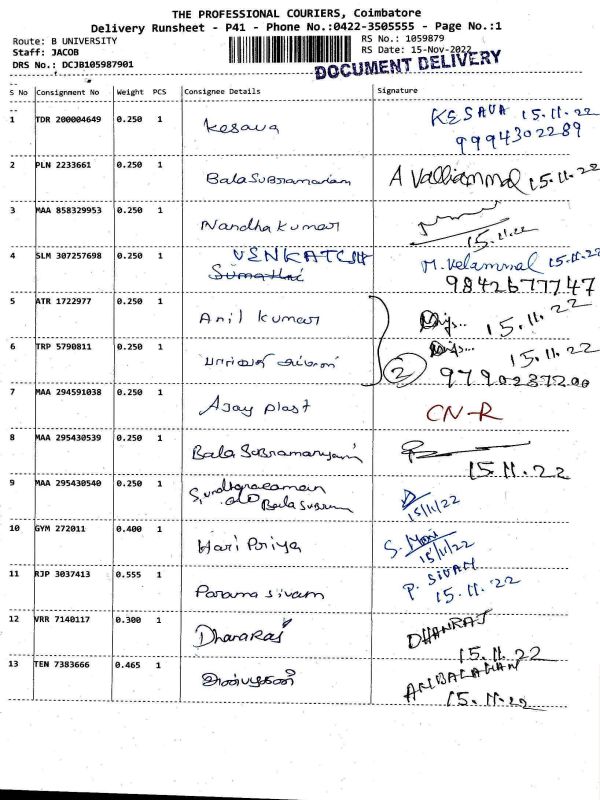 THE PROFESSIONAL COURIERS, Coimbatore
Delivery Runsheet - P41 - Phone No.:0422-3505555 - Page No.:1
Route: B UNIVERSITY
RS No.: 1059879
Staff: JACOB
RS Date: 15-Nov-2022
DRS No.: DCJB105987901
DOCUMENT DELIVERY
S No Consignment No Weight PCS Consignee Details Signature
1 TDR 200004649 0.250 1 Kesava KESAVA 15.11.22
9994302289
2 PLN 2233661 0.250 1 Bala Subramaniam A Valliammal 15.11.22
3 MAA 858329953 0.250 1 Nandha kumar
15.11.22
4 SLM 307257698 0.250 1 VENKATESH M. Velammal 15.11.22
Sumathi 9842677747
5 ATR 1722977 0.250 1 Anil kumar 15.11.22
6 TRP 5790811 0.250 1 15.11.22
2 9790237200
7 MAA 294591038 0.250 1 Ajay plast CN-R
8 MAA 295430539 0.250 1 Bala Subramaniyam
15.11.22
9 MAA 295430540 0.250 1
Bala Subram 15/11/22
10 GYM 272011 0.400 1 Hari Priya S. Mani
15/11/22
11 RJP 3037413 0.555 1 Parama sivam P. SIVAM
15.11.22
12 VRR 7140117 0.300 1 DhanaRaj DHANRAJ
15.11.22
13 TEN 7383666 0.465 1 அன்பழகன் ANBALAGAN
15.11.22